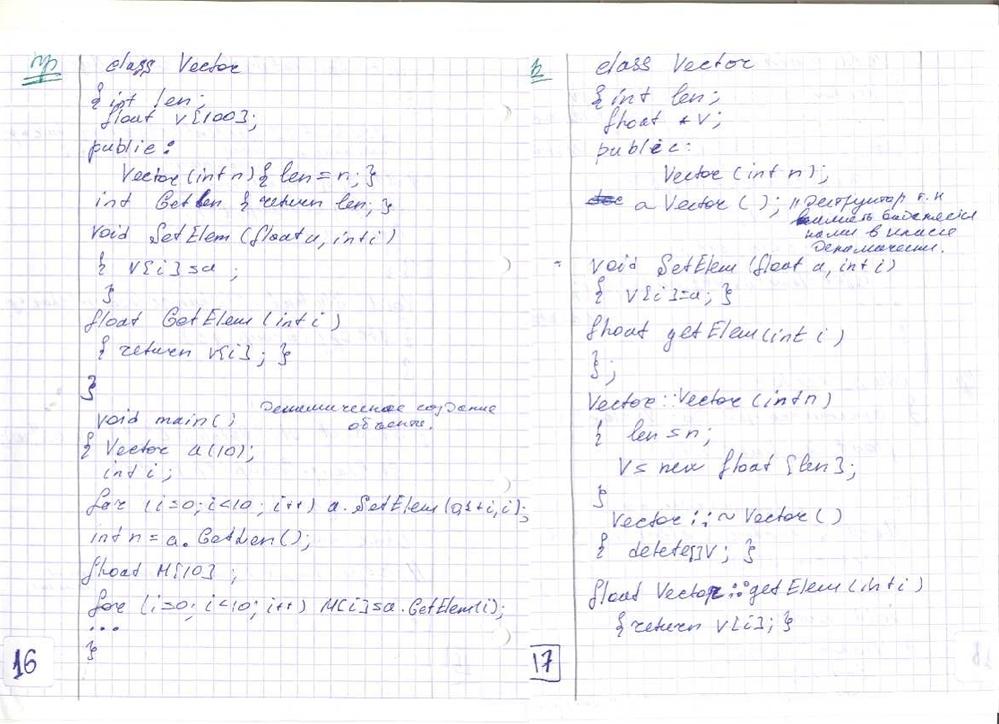 пр
class Vector
{ int len;
float v[100];
public:
Vector(int n) { len = n; }
int Get len { return len; }
void SetElem (float a, int i)
{ v[i] = a ;
}
float GetElem (int i)
{ return v[i] ; }
}
void main() Динамическое создание
объекта.
{ Vector a(10);
int i;
for (i=0; i<10; i++) a.SetElem(0,1+i,i);
int n = a.GetLen();
float M[10] ;
for (i=0; i<10; i++) M[i]=a.GetElem(i);
...
}
16
class Vector
{ int len;
float *v;
public:
Vector (int n);
Vector ( ); // деструктор т.к
нами в классе
динамически.
void SetElem (float a, int i)
{ v[i]=a; }
float getElem(int i)
};
Vector::Vector (int n)
{ len = n;
V = new float [len];
}
Vector :: ~ Vector ( )
{ delete[]v; }
float Vector::getElem(int i)
{ return v[i]; }
17